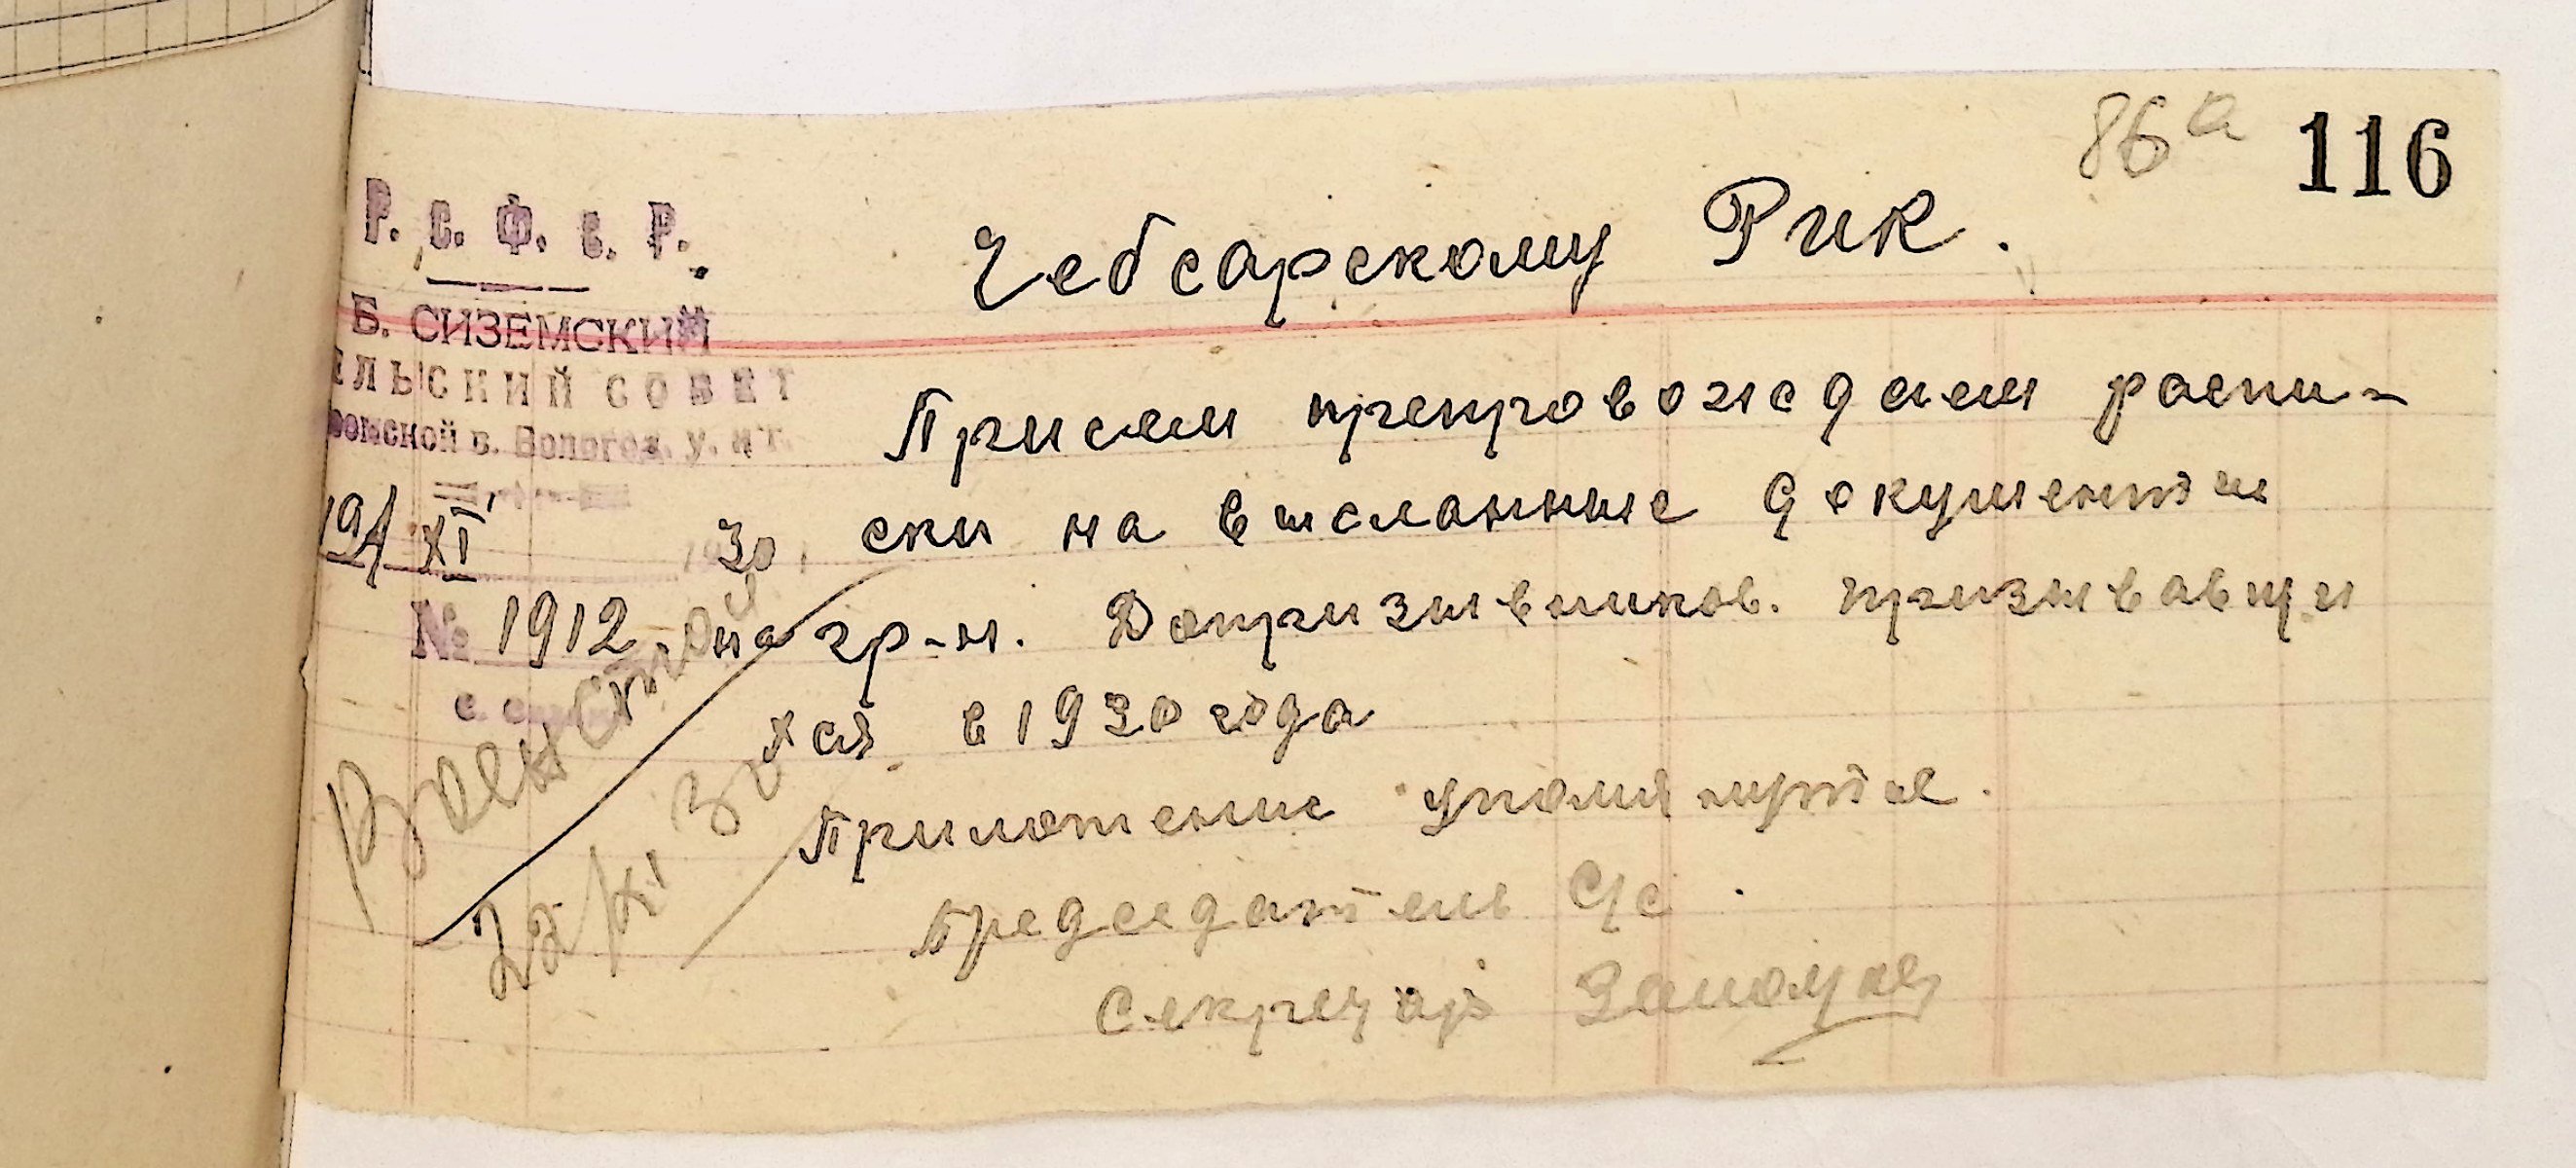 86а 116
Р. С. Ф. С. Р.
Б. СИЗЕМСКИЙ
ЕЛЬСКИЙ СОВЕТ
ромской в. Вологод. у. и г.
19/XI 30
№ 1912
Чебсарскому Рик.
Присем препровождаем распи-
ски на высланные документы
на гр-н. Допризывников. призывавши
хся в 1930 года
Приложение упомянутое.
Председатель С/с
Секретарь
Военстол
22/XI 30